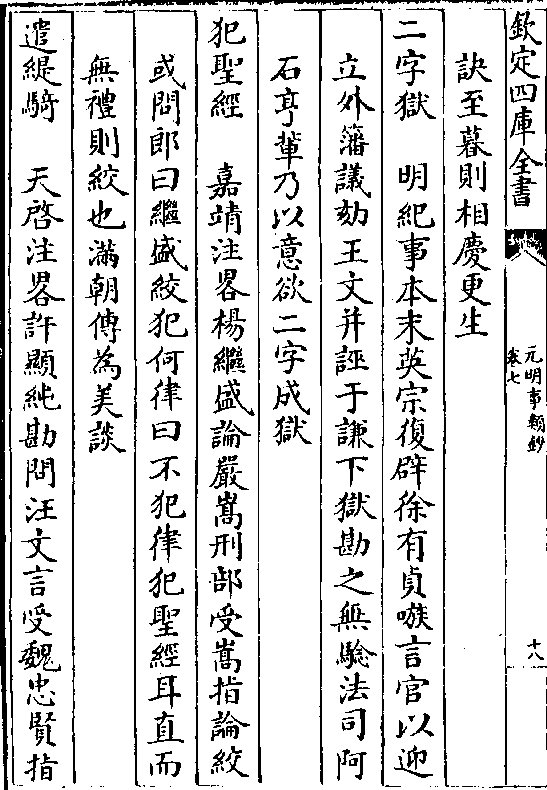 欽定四庫全書
元明事類鈔
卷七
十八
訣至暮則相慶更生
二字獄　明紀事本末英宗復辟徐有貞嗾言官以迎
立外藩議劾王文并誣于謙下獄勘之無驗法司阿
石亨輩乃以意欲二字成獄
犯聖經　嘉靖注畧楊繼盛論嚴嵩刑部受嵩指論絞
或問郎曰繼盛絞犯何律曰不犯律犯聖經耳直而
無禮則絞也滿朝傳為美談
遣緹騎　天啓注畧許顯純勘問汪文言受魏忠賢指